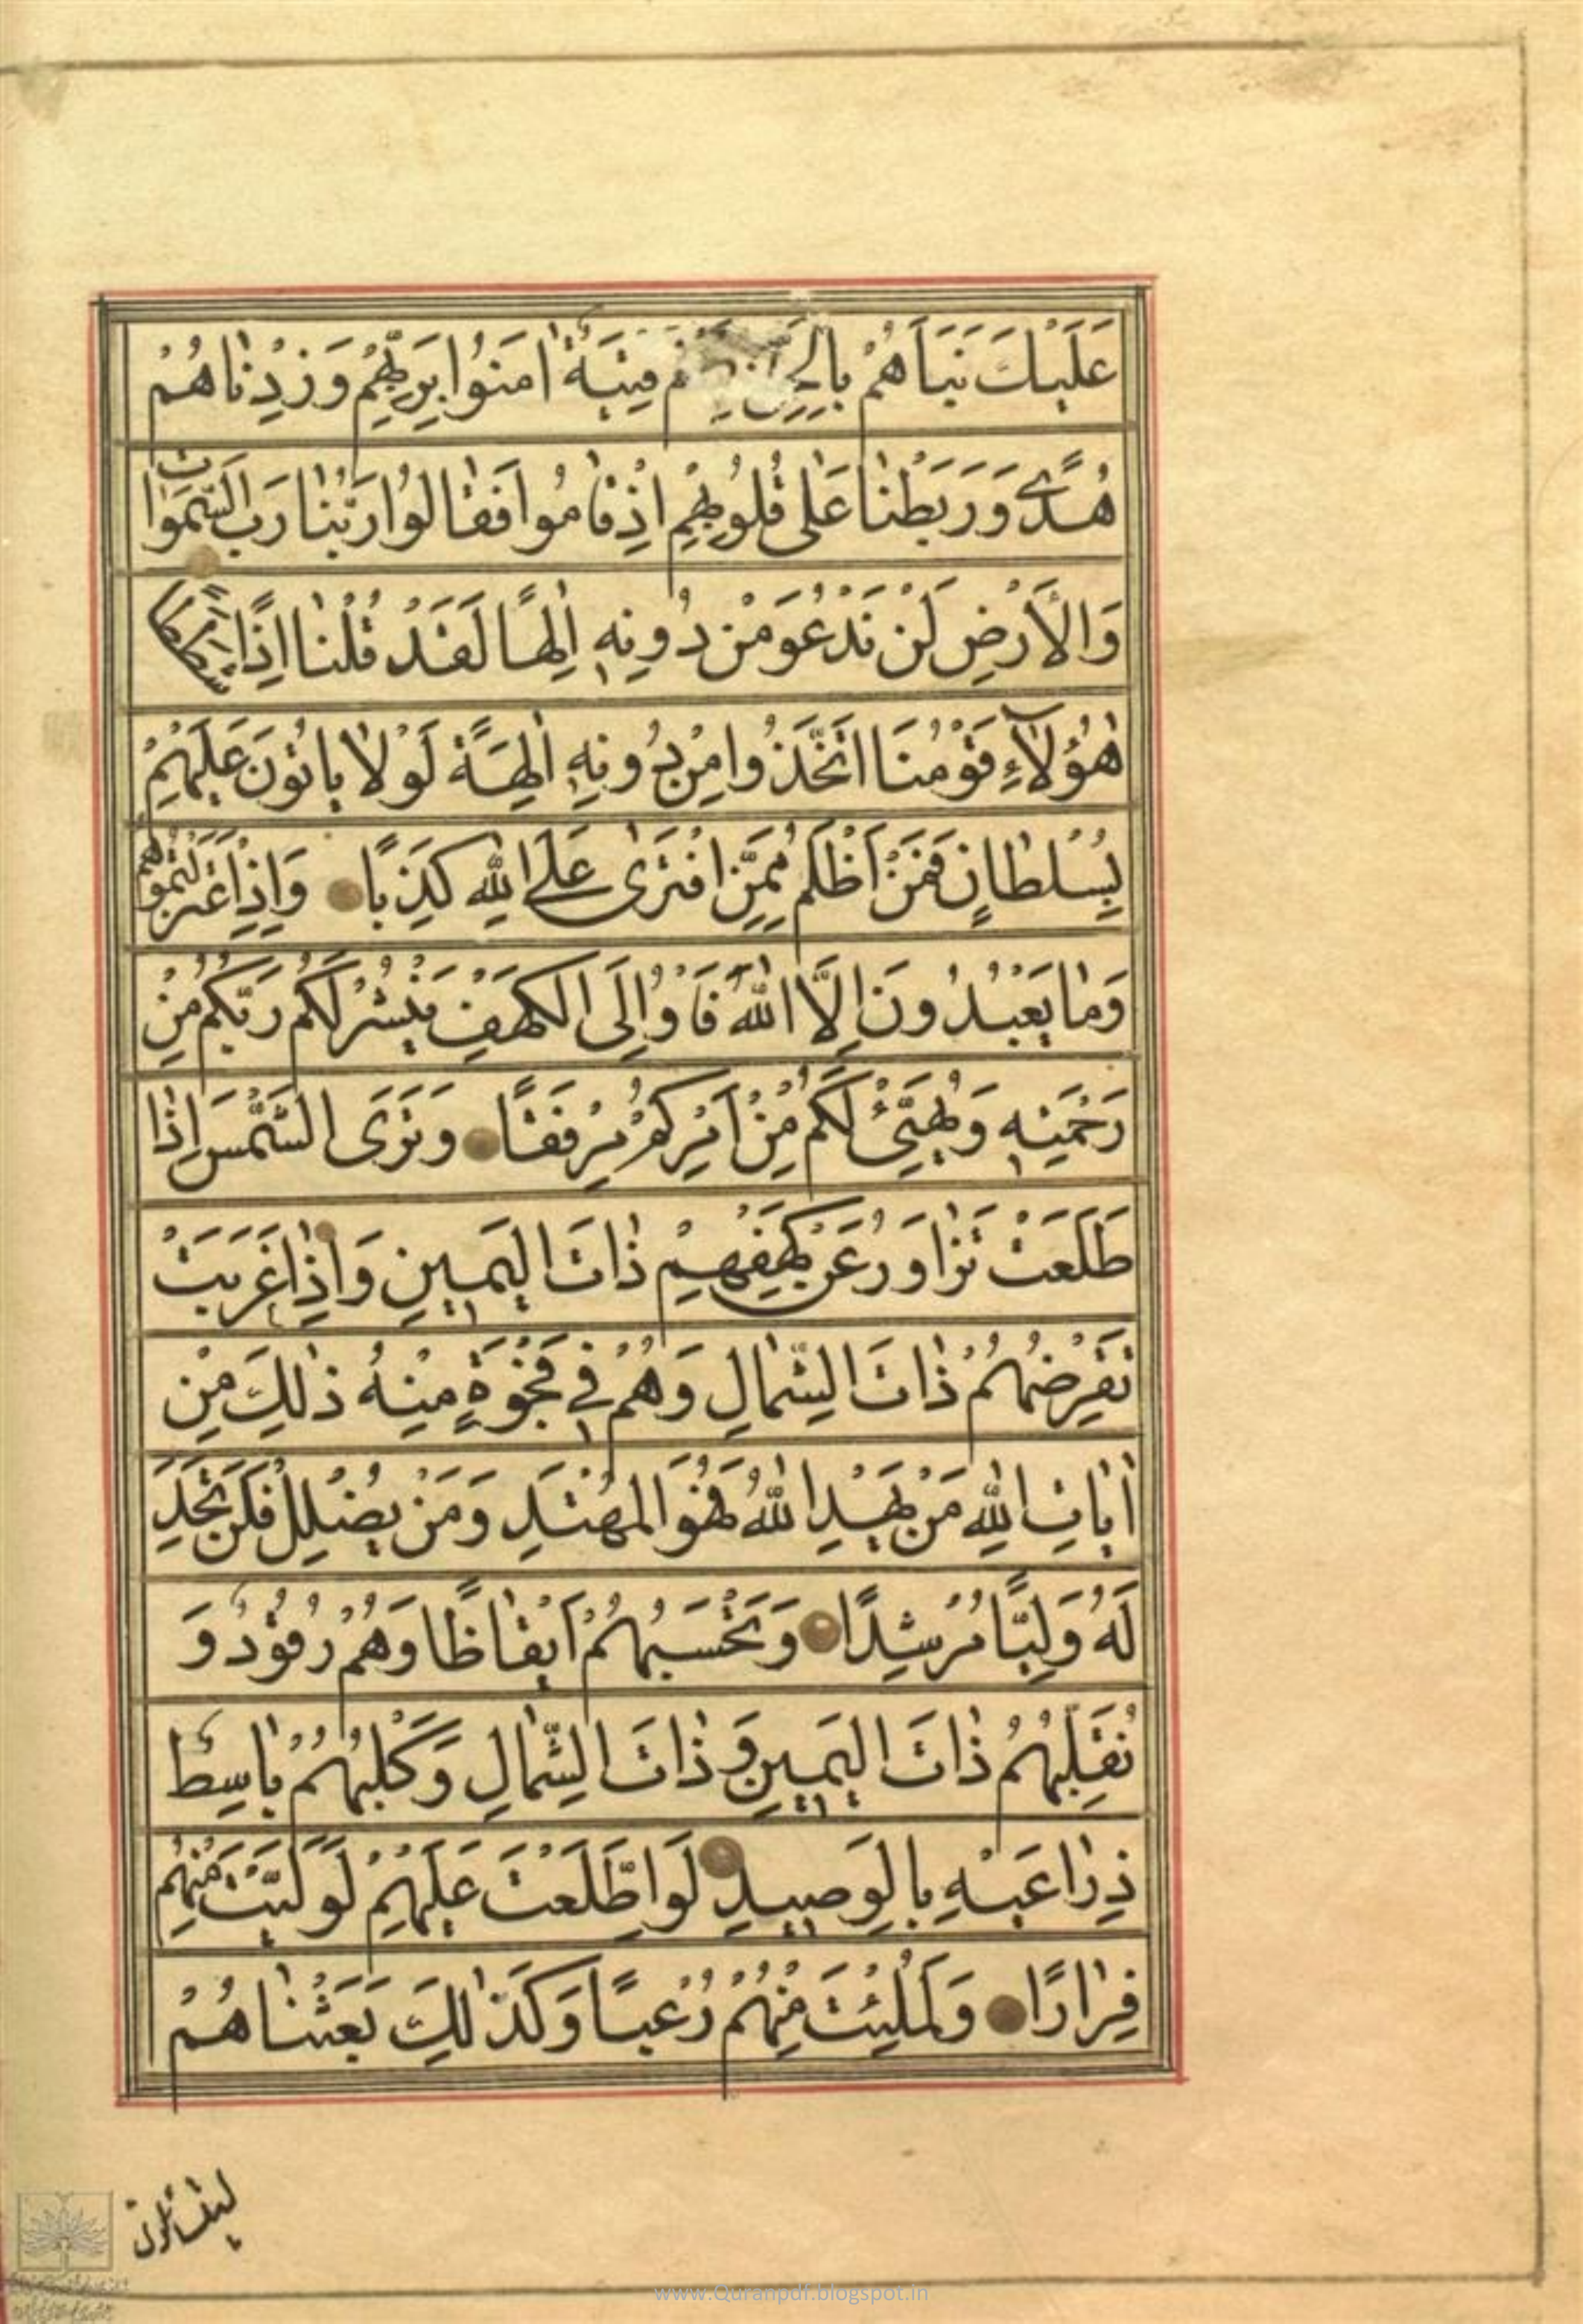 عَلَيْكَ نَبَأَهُمْ بِالْحَقِّ فِتْيَةٌ اٰمَنُوا بِرَبِّهِمْ وَزِدْنٰاهُمْ
هُدًى وَرَبَطْنٰا عَلٰى قُلُوبِهِمْ اِذْ قٰامُوا فَقٰالُوا رَبُّنٰا رَبُّ السَّمٰوٰاتِ
وَالْاَرْضِ لَنْ نَدْعُوَ مِنْ دُونِهِ اِلٰهًا لَقَدْ قُلْنٰا اِذًا شَطَطًا
هٰؤُلَآءِ قَوْمُنَا اتَّخَذُوا مِنْ دُونِهِ اٰلِهَةً لَوْلٰا يَاْتُونَ عَلَيْهِمْ
بِسُلْطٰانٍ فَمَنْ اَظْلَمُ مِمَّنِ افْتَرٰى عَلَى اللّٰهِ كَذِبًا وَاِذِ اعْتَزَلْتُمُوهُمْ
وَمٰا يَعْبُدُونَ اِلَّا اللّٰهَ فَأْوُا اِلَى الْكَهْفِ يَنْشُرْ لَكُمْ رَبُّكُمْ مِنْ
رَحْمَتِهِ وَيُهَيِّئْ لَكُمْ مِنْ اَمْرِكُمْ مِرْفَقًا وَتَرَى الشَّمْسَ اِذٰا
طَلَعَتْ تَزٰاوَرُ عَنْ كَهْفِهِمْ ذٰاتَ الْيَمِينِ وَاِذٰا غَرَبَتْ
تَقْرِضُهُمْ ذٰاتَ الشِّمٰالِ وَهُمْ فِي فَجْوَةٍ مِنْهُ ذٰلِكَ مِنْ
اٰيٰاتِ اللّٰهِ مَنْ يَهْدِ اللّٰهُ فَهُوَ الْمُهْتَدِ وَمَنْ يُضْلِلْ فَلَنْ تَجِدَ
لَهُ وَلِيًّا مُرْشِدًا وَتَحْسَبُهُمْ اَيْقٰاظًا وَهُمْ رُقُودٌ وَ
نُقَلِّبُهُمْ ذٰاتَ الْيَمِينِ وَ ذٰاتَ الشِّمٰالِ وَكَلْبُهُمْ بٰاسِطٌ
ذِرٰاعَيْهِ بِالْوَصِيدِ لَوِ اطَّلَعْتَ عَلَيْهِمْ لَوَلَّيْتَ مِنْهُمْ
فِرٰارًا وَلَمُلِئْتَ مِنْهُمْ رُعْبًا وَكَذٰلِكَ بَعَثْنٰاهُمْ
ليتسائلون
www.Quranpdf.blogspot.in